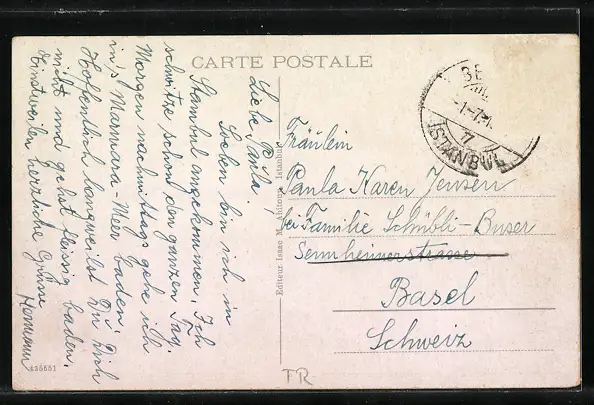 CARTE POSTALE
Liebe Paula
Soeben bin ich in
Stambul angekommen. Ich
schwitze schon den ganzen Tag.
Morgen nachmittags gehe ich
ins Marmara-Meer baden.
Hoffentlich langweilst Du Dich
nicht und gehst fleissig baden.
Einstweilen herzliche Grüsse
Hermann
435551
Editeur Isaac M. Istanbul
BE
ISTANBUL
Fräulein
Paula Karen Jensen
bei Familie Schübli-Buser
Sennheimerstrasse
Basel
Schweiz
FR